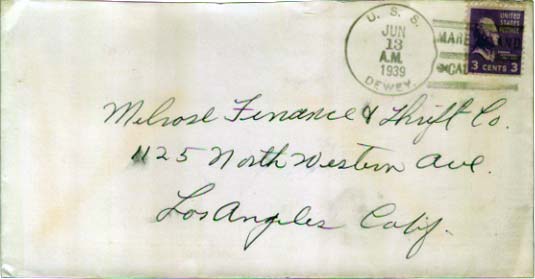 U. S. S.
JUN
13
A.M.
1939
DEWEY.
MARE ISLAND
CAL
UNITED
STATES
POSTAGE
3 CENTS 3
Melrose Finance & Thrift Co.
1125 North Western Ave.
Los Angeles Calif.